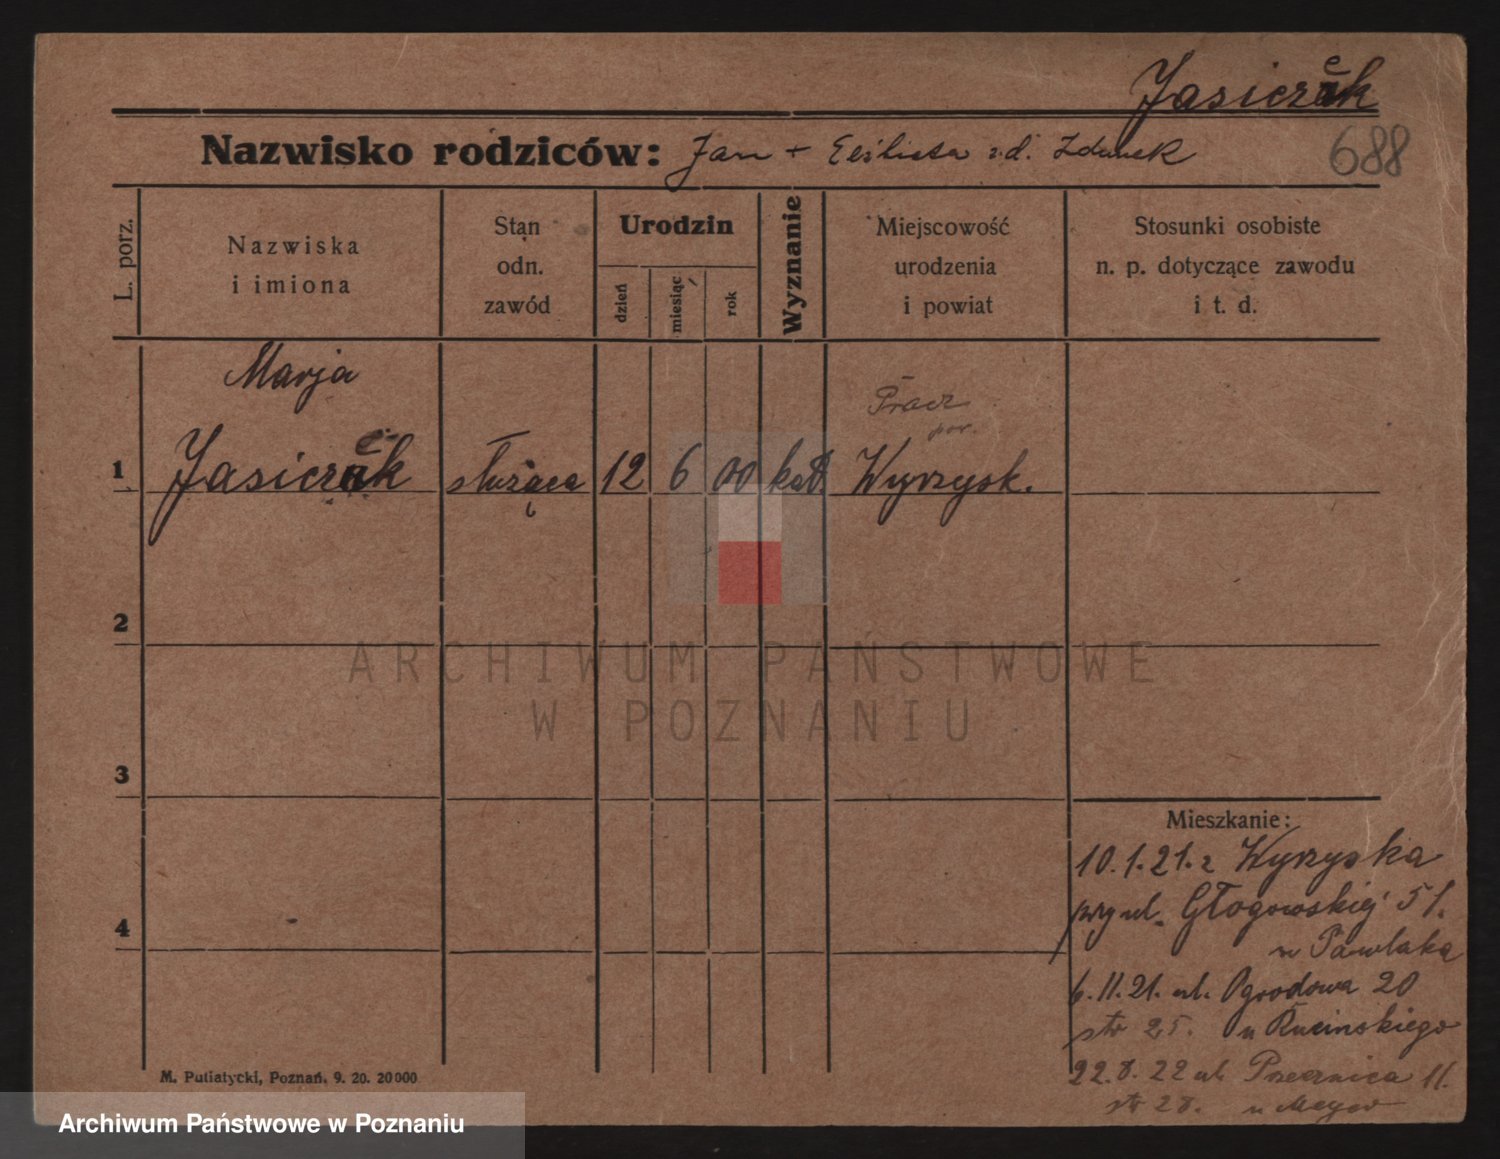 Jasiczek
688
Nazwisko rodziców: Jan + Elżbieta z d. Zdunek
L. porz.
Nazwiska
i imiona
Stan
odn.
zawód
Urodzin
dzień
miesiąc
rok
Wyznanie
Miejscowość
urodzenia
i powiat
Stosunki osobiste
n. p. dotyczące zawodu
i t. d.
Marja
1 Jasiczek służąca 12 6 00 kat.
Pracz
pow.
Wyrzysk.
2
3
4
Mieszkanie:
10.1.21. z Wyrzyska
przy ul. Głogowskiej 51.
u Pawlaka
6.11.21. ul. Ogrodowa 20
str 25. u Rucinskiego
22.8.22 ul. Przecznica 11.
str 28. u Meyer
M. Putiatycki, Poznań. 9. 20. 20000
ARCHIWUM PAŃSTWOWE
W POZNANIU
Archiwum Państwowe w Poznaniu